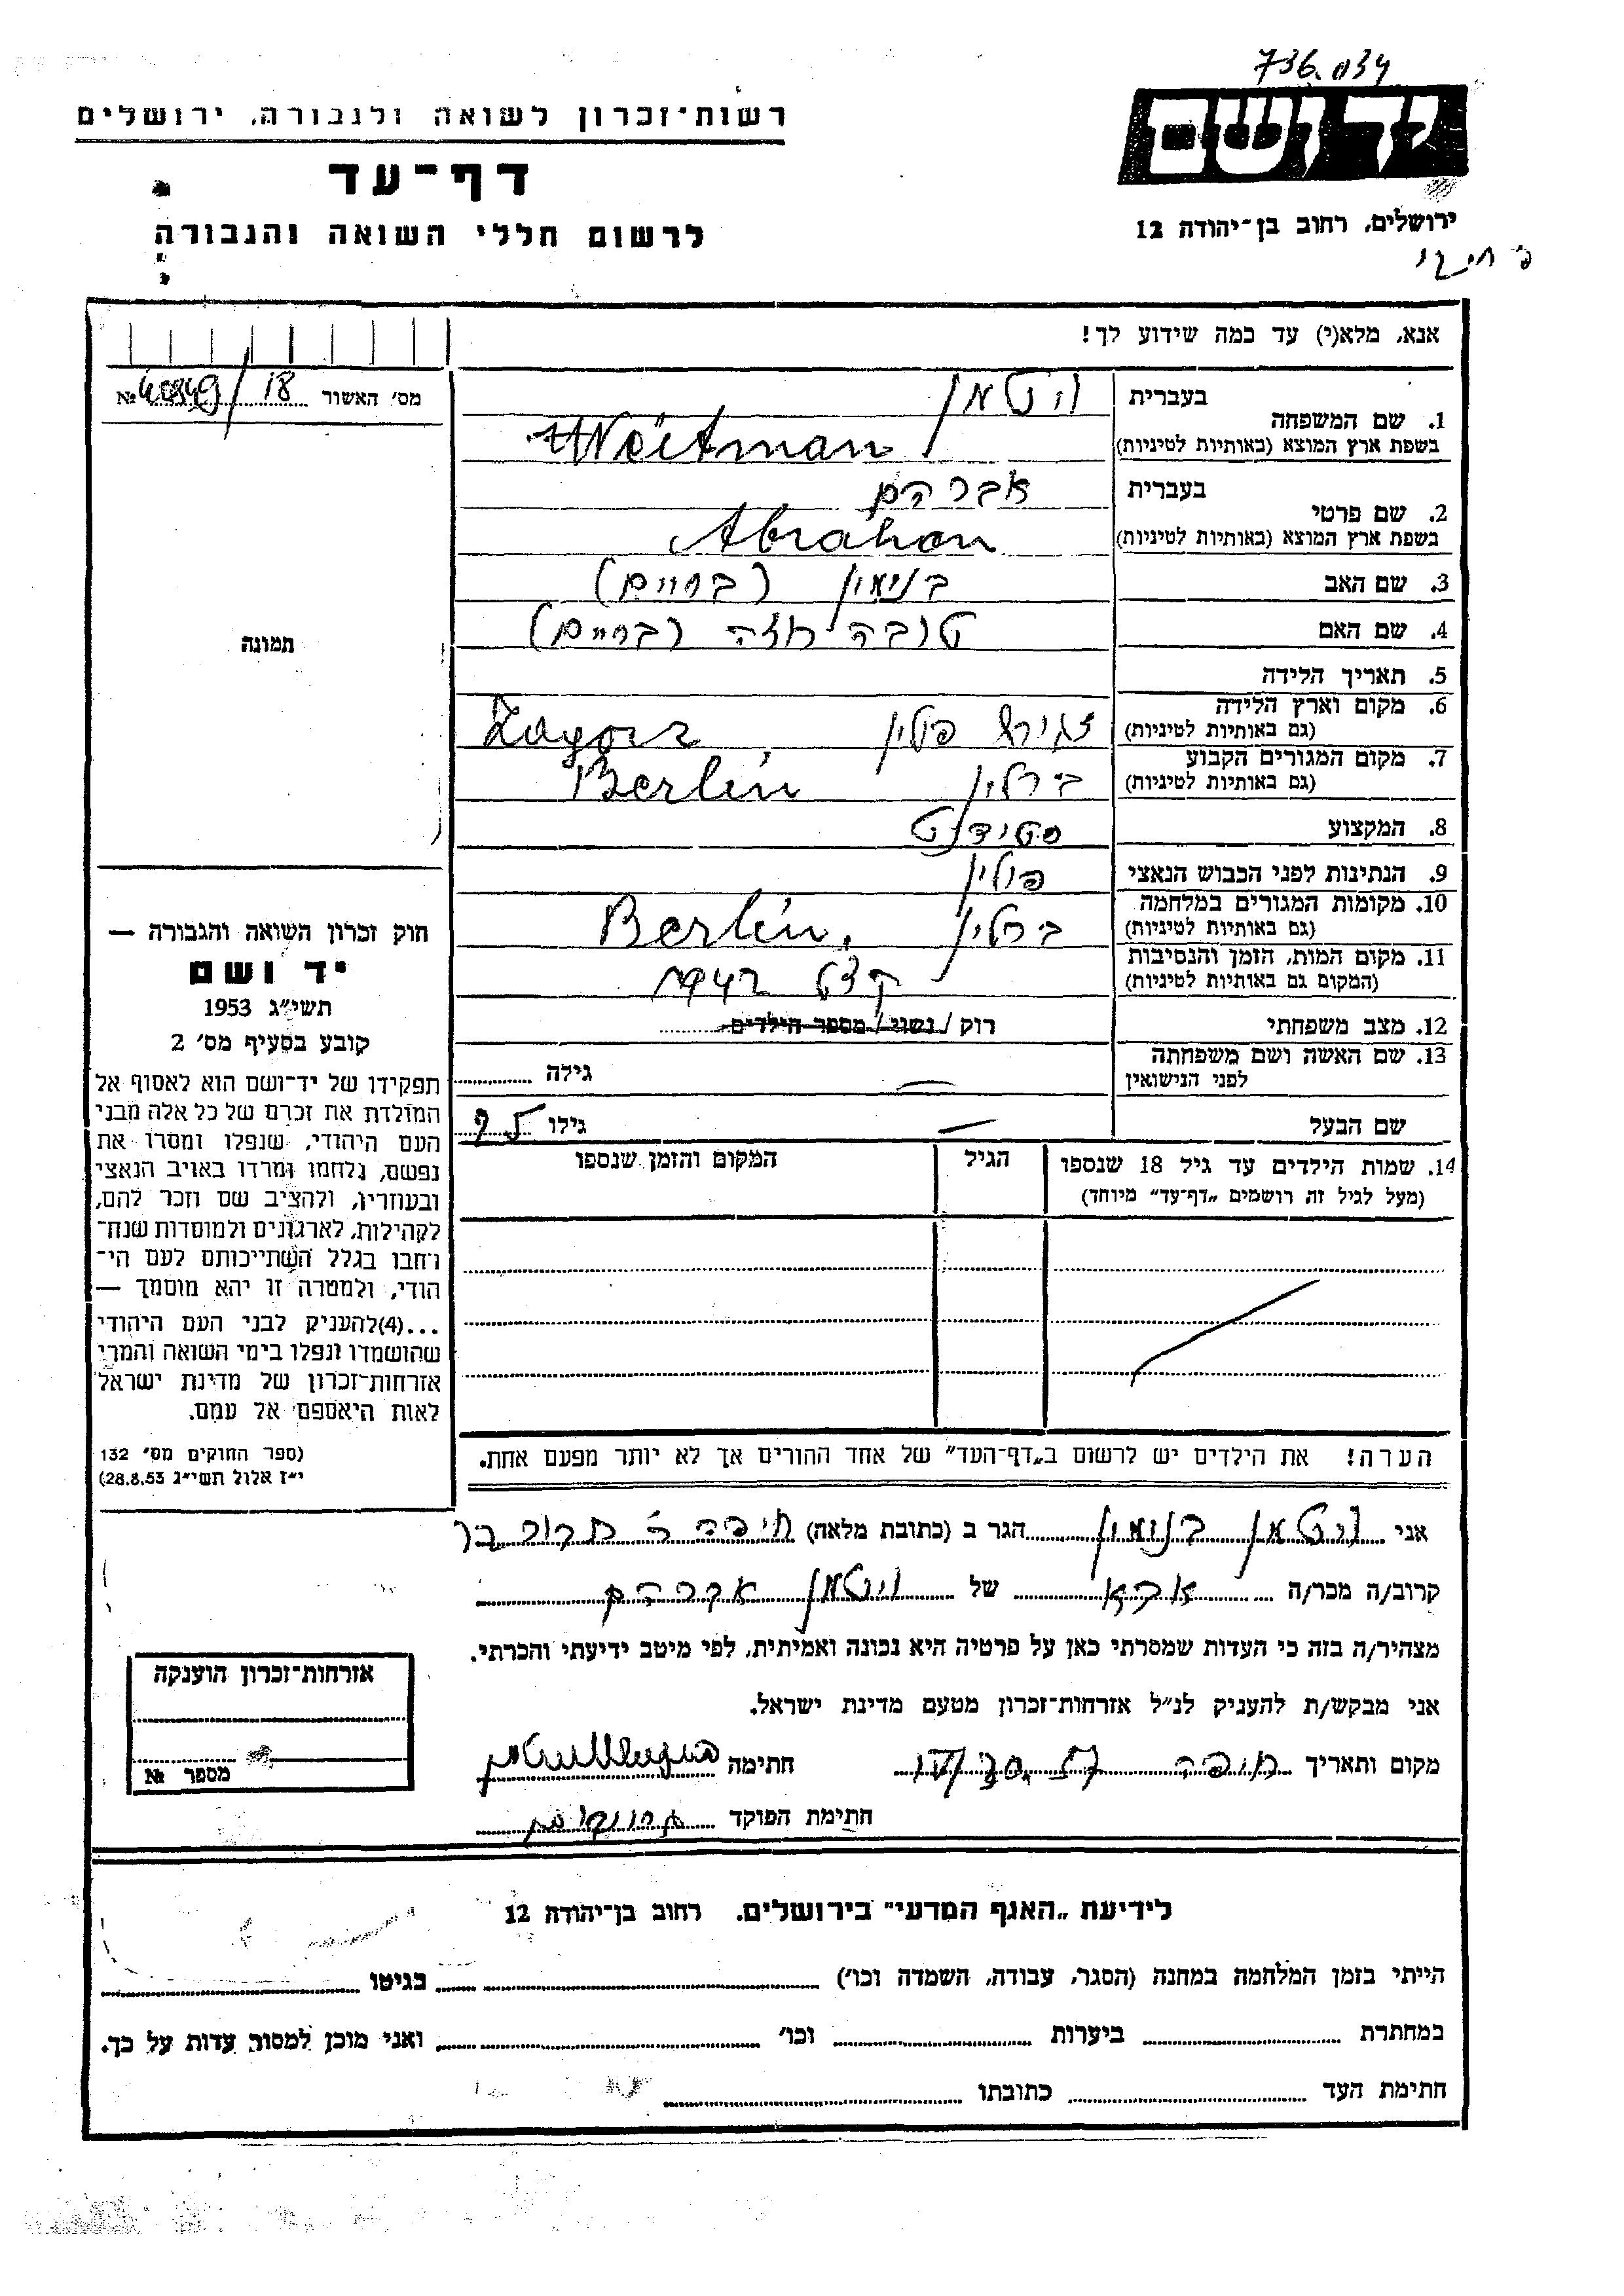 736.034
יד ושם
רשות־זכרון לשואה ולגבורה, ירושלים
דף־עד
לרשום חללי השואה והגבורה
ירושלים, רחוב בן־יהודה 12
אנא, מלא(י) עד כמה שידוע לך!
מס׳ האשור 18 / № 40849
1. שם המשפחה
בעברית ויטמן
בשפת ארץ המוצא (באותיות לטיניות) Weitman
2. שם פרטי
בעברית אברהם
בשפת ארץ המוצא (באותיות לטיניות) Abraham
3. שם האב בנימין (בחיים)
4. שם האם טובה רוזה (בחיים)
5. תאריך הלידה
6. מקום וארץ הלידה
(גם באותיות לטיניות) פולין
7. מקום המגורים הקבוע
(גם באותיות לטיניות) ברלין Berlin
8. המקצוע סטודנט
9. הנתינות לפני הכבוש הנאצי פולין
10. מקומות המגורים במלחמה
(גם באותיות לטיניות) ברלין Berlin,
11. מקום המות, הזמן והנסיבות
(המקום גם באותיות לטיניות)
12. מצב משפחתי רוק / נשוי / מספר הילדים
13. שם האשה ושם משפחתה
לפני הנישואין גילה
שם הבעל גילו
14. שמות הילדים עד גיל 18 שנספו
(מעל לגיל זה רושמים „דף־עד״ מיוחד)
הגיל
המקום והזמן שנספו
הערה! את הילדים יש לרשום ב„דף־העד״ של אחד ההורים אך לא יותר מפעם אחת.
תמונה
חוק זכרון השואה והגבורה —
יד ושם
תשי״ג 1953
קובע בסעיף מס׳ 2
תפקידו של יד־ושם הוא לאסוף אל
המולדת את זכרם של כל אלה מבני
העם היהודי, שנפלו ומסרו את
נפשם, נלחמו ומרדו באויב הנאצי
ובעוזריו, ולהציב שם וזכר להם,
לקהילות, לארגונים ולמוסדות שנח־
רחבו בגלל השתייכותם לעם הי־
הודי, ולמטרה זו יהא מוסמך —
...(4)להעניק לבני העם היהודי
שהושמדו ונפלו בימי השואה והמרי
אזרחות־זכרון של מדינת ישראל
לאות היאספם אל עמם.
(ספר החוקים מס׳ 132
י״ז אלול תשי״ג 28.8.53)
אני ויטמן בנימין הגר ב (כתובת מלאה) חיפה
קרוב/ה מכר/ה אבא של ויטמן אברהם
מצהיר/ה בזה כי העדות שמסרתי כאן על פרטיה היא נכונה ואמיתית, לפי מיטב ידיעתי והכרתי.
אני מבקש/ת להעניק לנ״ל אזרחות־זכרון מטעם מדינת ישראל.
מקום ותאריך חיפה חתימה
חתימת הפוקד
אזרחות־זכרון הוענקה
מספר №
לידיעת „האגף המדעי״ בירושלים, רחוב בן־יהודה 12
הייתי בזמן המלחמה במחנה (הסגר, עבודה, השמדה וכו׳) בגיטו
במחתרת ביערות וכו׳ ואני מוכן למסור עדות על כך.
חתימת העד כתובתו